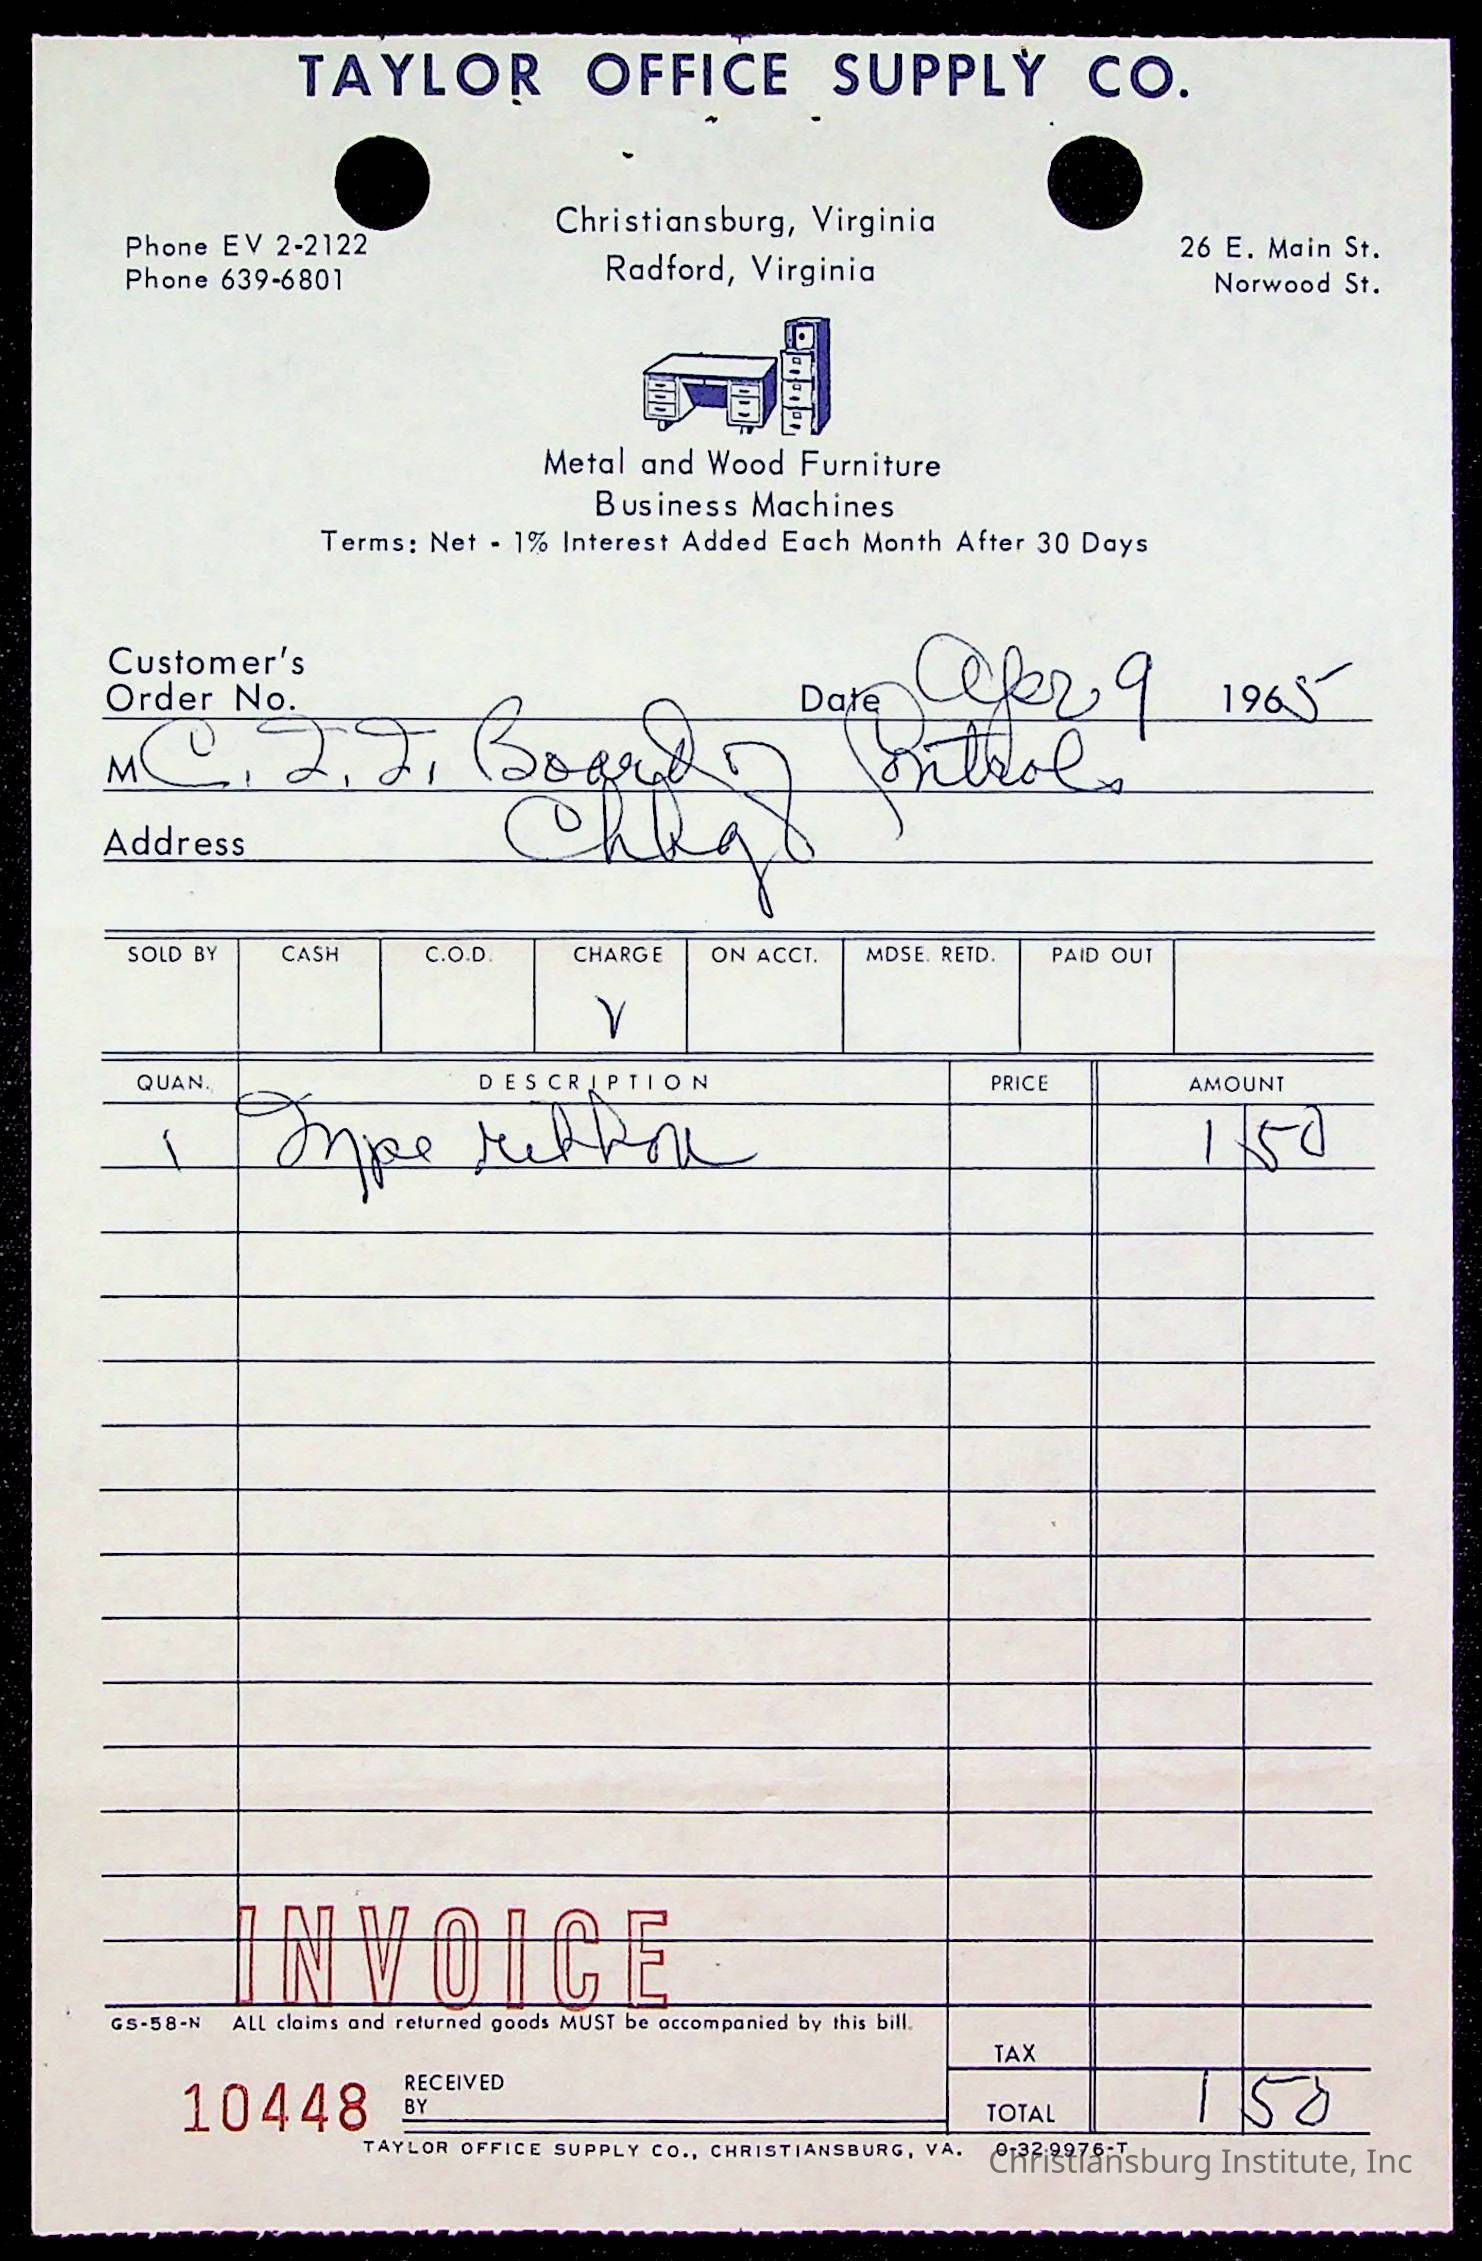 TAYLOR OFFICE SUPPLY CO.
Christiansburg, Virginia
Radford, Virginia
Phone EV 2-2122
Phone 639-6801
26 E. Main St.
Norwood St.
Metal and Wood Furniture
Business Machines
Terms: Net - 1% Interest Added Each Month After 30 Days
Customer's
Order No.
Date Apr 9 1965
M C. I. I. Board of Control
Address Chbg
SOLD BY CASH C.O.D. CHARGE ON ACCT. MDSE. RETD. PAID OUT
√
QUAN. DESCRIPTION PRICE AMOUNT
1 Type ribbon 1 50
INVOICE
GS-58-N ALL claims and returned goods MUST be accompanied by this bill.
TAX
10448 RECEIVED
BY
TOTAL 1 50
TAYLOR OFFICE SUPPLY CO., CHRISTIANSBURG, VA. 0-32-9976-T
Christiansburg Institute, Inc